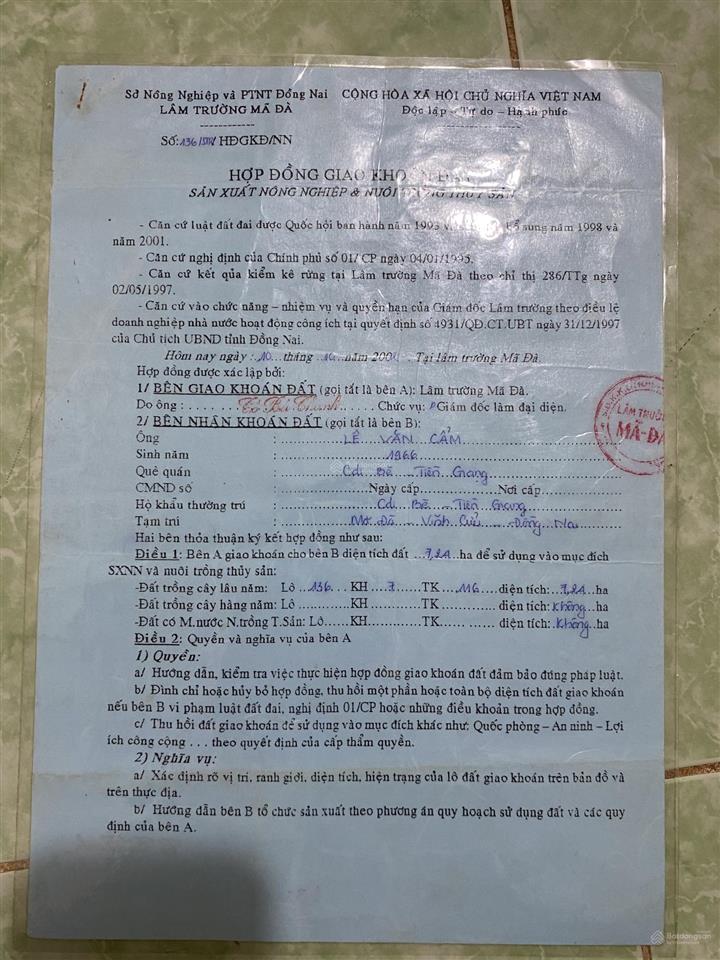 Sở Nông Nghiệp và PTNT Đồng Nai
LÂM TRƯỜNG MÃ ĐÀ
CỘNG HÒA XÃ HỘI CHỦ NGHĨA VIỆT NAM
Độc lập – Tự do – Hạnh phúc
Số: 136 HĐGKĐ/NN
HỢP ĐỒNG GIAO KHOÁN
SẢN XUẤT NÔNG NGHIỆP & NUÔI TRỒNG THỦY SẢN
- Căn cứ luật đất đai được Quốc hội ban hành năm 1993 bổ sung năm 1998 và
năm 2001.
- Căn cứ nghị định của Chính phủ số 01/ CP ngày 04/01/1995.
- Căn cứ kết qủa kiểm kê rừng tại Lâm trường Mã Đà theo chỉ thị 286/TTg ngày
02/05/1997.
- Căn cứ vào chức năng – nhiệm vụ và quyền hạn của Giám đốc Lâm trường theo điều lệ
doanh nghiệp nhà nước hoạt động công ích tại quyết định số 4931/QĐ.CT.UBT ngày 31/12/1997
của Chủ tịch UBND tỉnh Đồng Nai.
Hôm nay ngày : 10 tháng 10 năm 200 . Tại lâm trường Mã Đà.
Hợp đồng được xác lập bởi:
1/ BÊN GIAO KHOÁN ĐẤT (gọi tắt là bên A): Lâm trường Mã Đà.
Do ông : . . . . . . . Tô Bá Thanh . . . . . . Chức vụ: P Giám đốc làm đại diện.
2/ BÊN NHẬN KHOÁN ĐẤT (gọi tắt là bên B):
Ông : LÊ VĂN CẨM
Sinh năm : 1966
Quê quán : Cái Bè Tiền Giang
CMND số : Ngày cấp Nơi cấp
Hộ khẩu thường trú : Cái Bè - Tiền Giang
Tạm trú : Mã Đà - Vĩnh Cửu - Đồng Nai
Hai bên thỏa thuận ký kết hợp đồng như sau:
Điều 1: Bên A giao khoán cho bên B diện tích đất ..7,21..ha để sử dụng vào mục đích
SXNN và nuôi trồng thủy sản:
-Đất trồng cây lâu năm: Lô ...136... KH ...7... TK ...116... diện tích: 7,21 ha
-Đất trồng cây hàng năm: Lô KH TK diện tích: Không ha
-Đất có M.nước N.trồng T.Sản: Lô KH TK diện tích: Không ha
Điều 2: Quyền và nghĩa vụ của bên A
1) Quyền:
a/ Hướng dẫn, kiểm tra việc thực hiện hợp đồng giao khoán đất đảm bảo đúng pháp luật.
b/ Đình chỉ hoặc hủy bỏ hợp đồng, thu hồi một phần hoặc toàn bộ diện tích đất giao khoán
nếu bên B vi phạm luật đất đai, nghị định 01/CP hoặc những điều khoản trong hợp đồng.
c/ Thu hồi đất giao khoán để sử dụng vào mục đích khác như: Quốc phòng – An ninh – Lợi
ích công cộng . . . theo quyết định của cấp thẩm quyền.
2) Nghĩa vụ:
a/ Xác định rõ vị trí, ranh giới, diện tích, hiện trạng của lô đất giao khoán trên bản đồ và
trên thực địa.
b/ Hướng dẫn bên B tổ chức sản xuất theo phương án quy hoạch sử dụng đất và các quy
định của bên A.
LÂM TRƯỜNG
MÃ-ĐÀ
Batdongsan